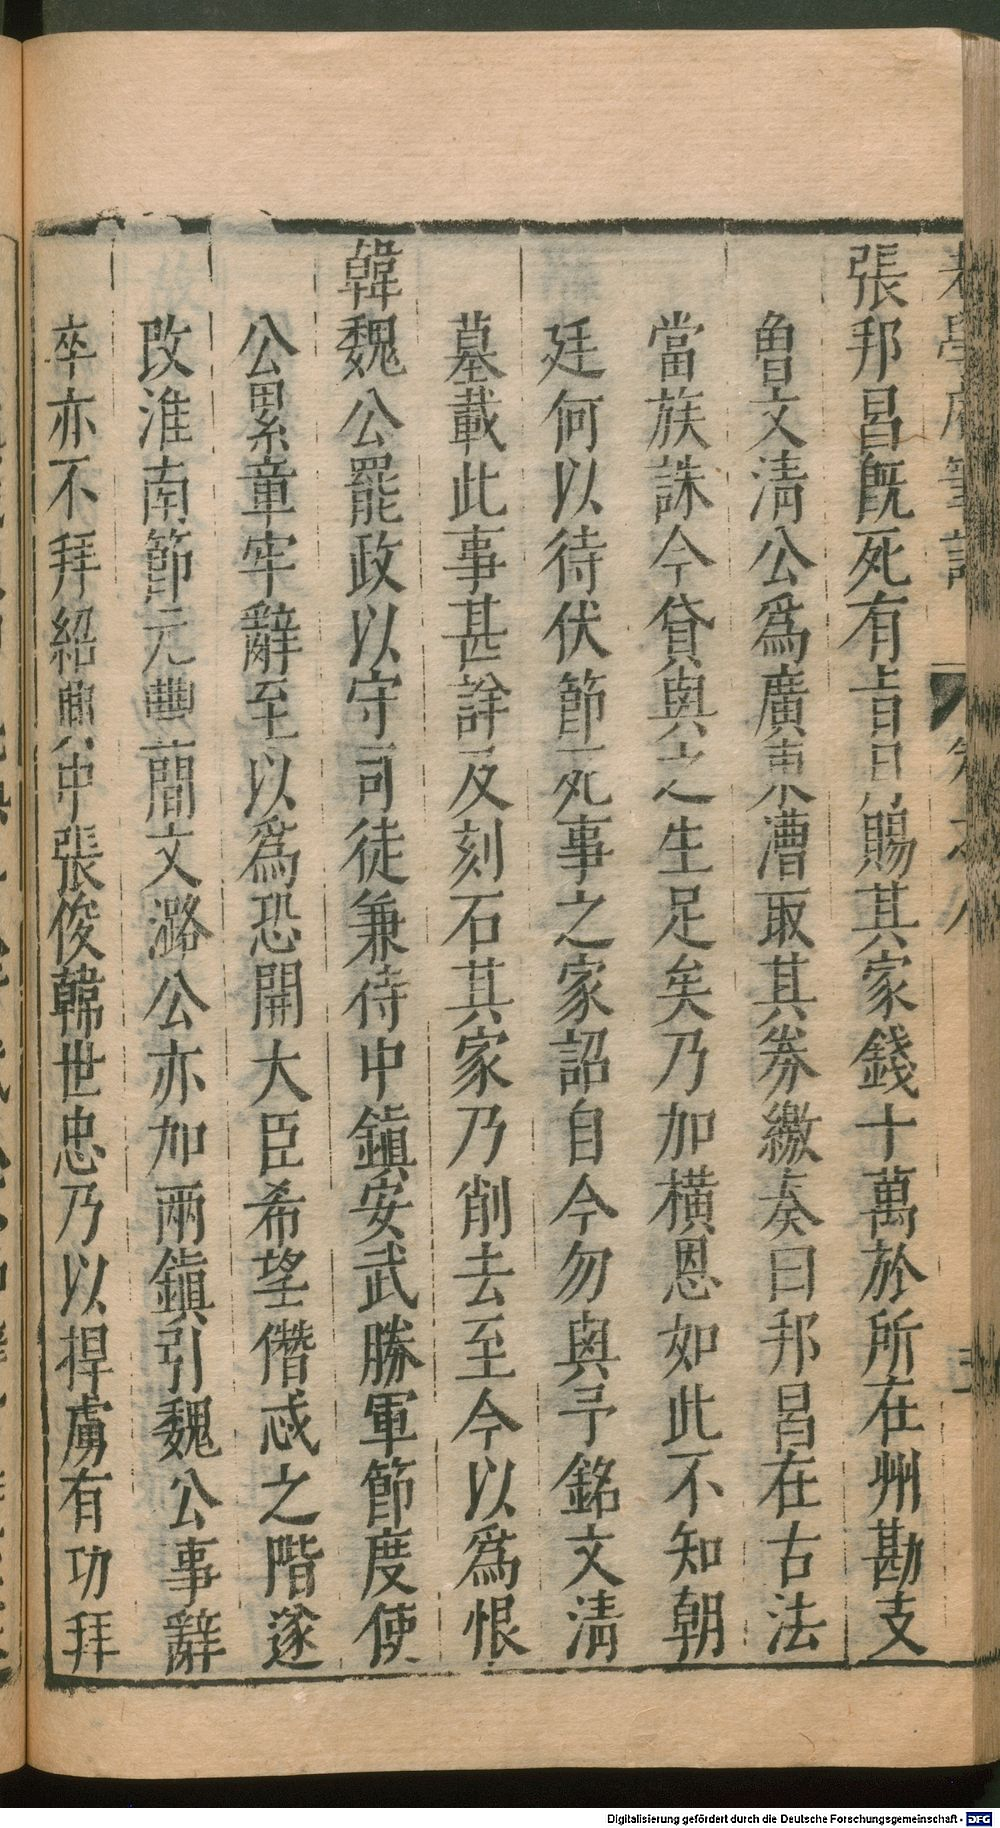 張邦昌旣死有旨日賜其家錢十萬於所在州勘支
魯文淸公爲廣東漕取其劵繳奏曰邦昌在古法
當族誅今貸與之生足矣乃加橫恩如此不知朝
廷何以待伏節死事之家詔自今勿與予銘文淸
墓載此事甚詳及刻石其家乃削去至今以爲恨
韓魏公罷政以守司徒兼侍中鎭安武勝軍節度使
公累章牢辭至以爲恐開大臣希望僭忒之階遂
改淮南節元豐間文潞公亦加兩鎭引魏公事辭
卒亦不拜紹興中張俊韓世忠乃以捍虜有功拜
Digitalisierung gefördert durch die Deutsche Forschungsgemeinschaft - DFG